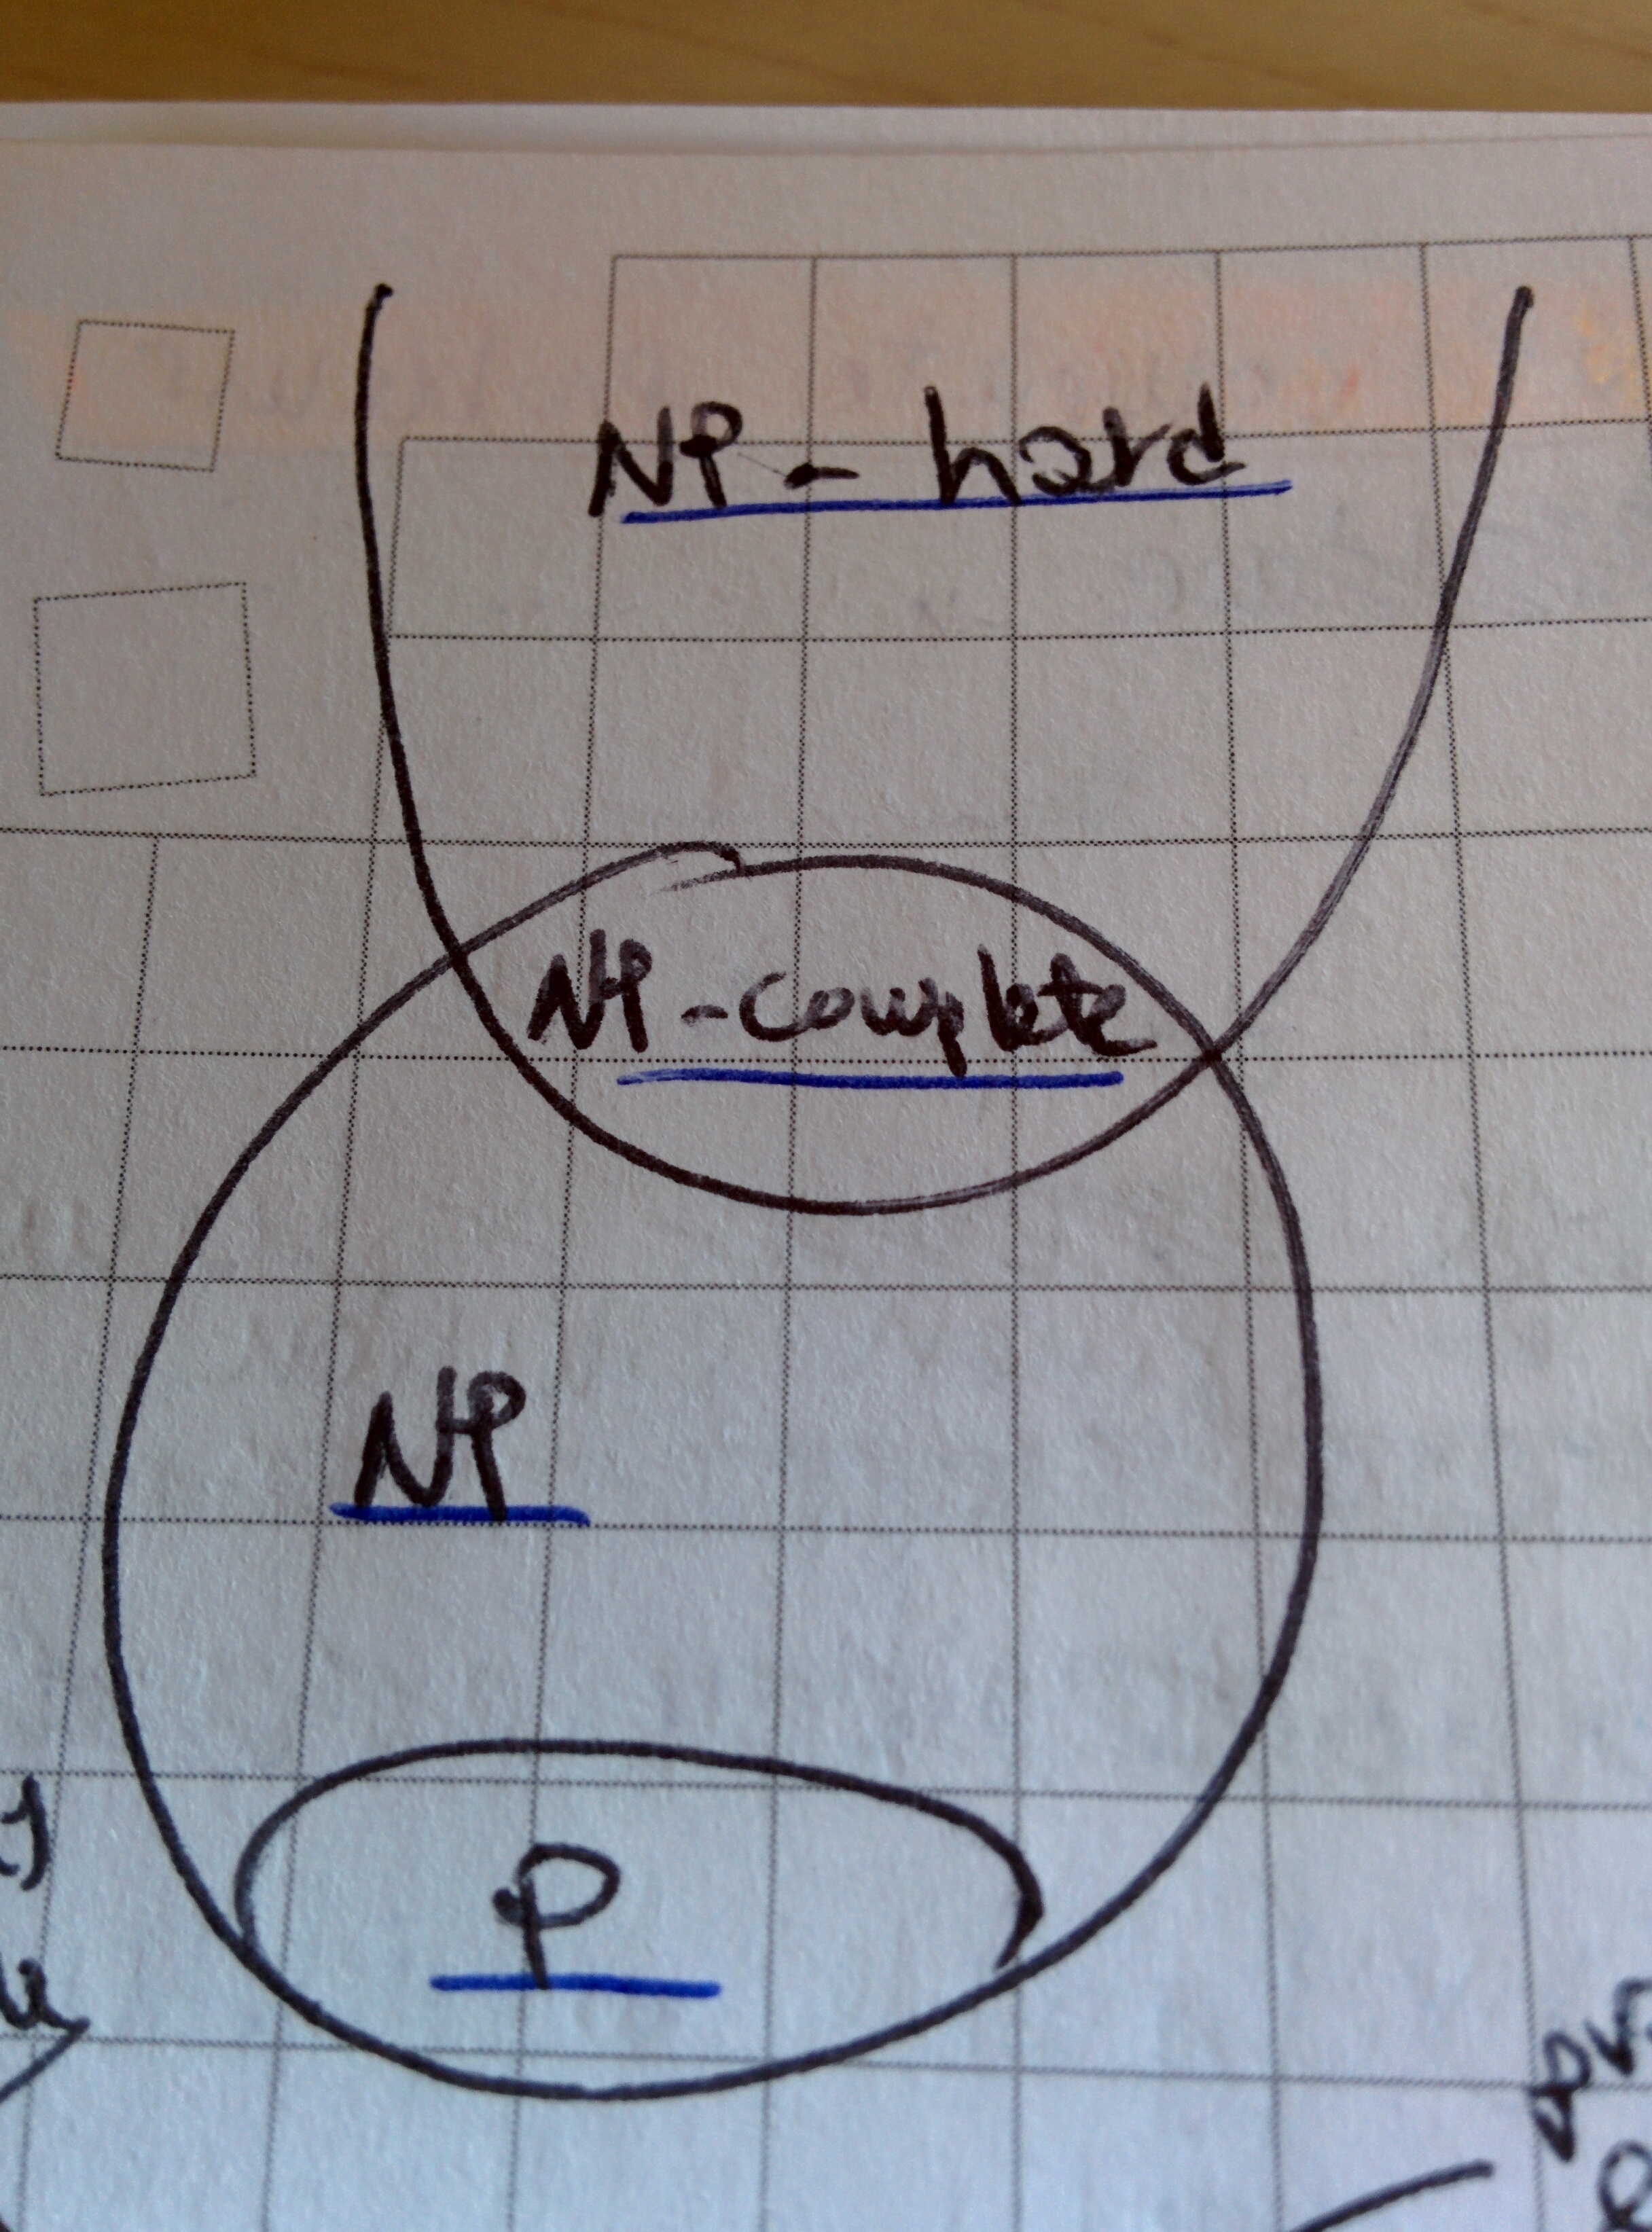 NP - hard
NP - complete
NP
P